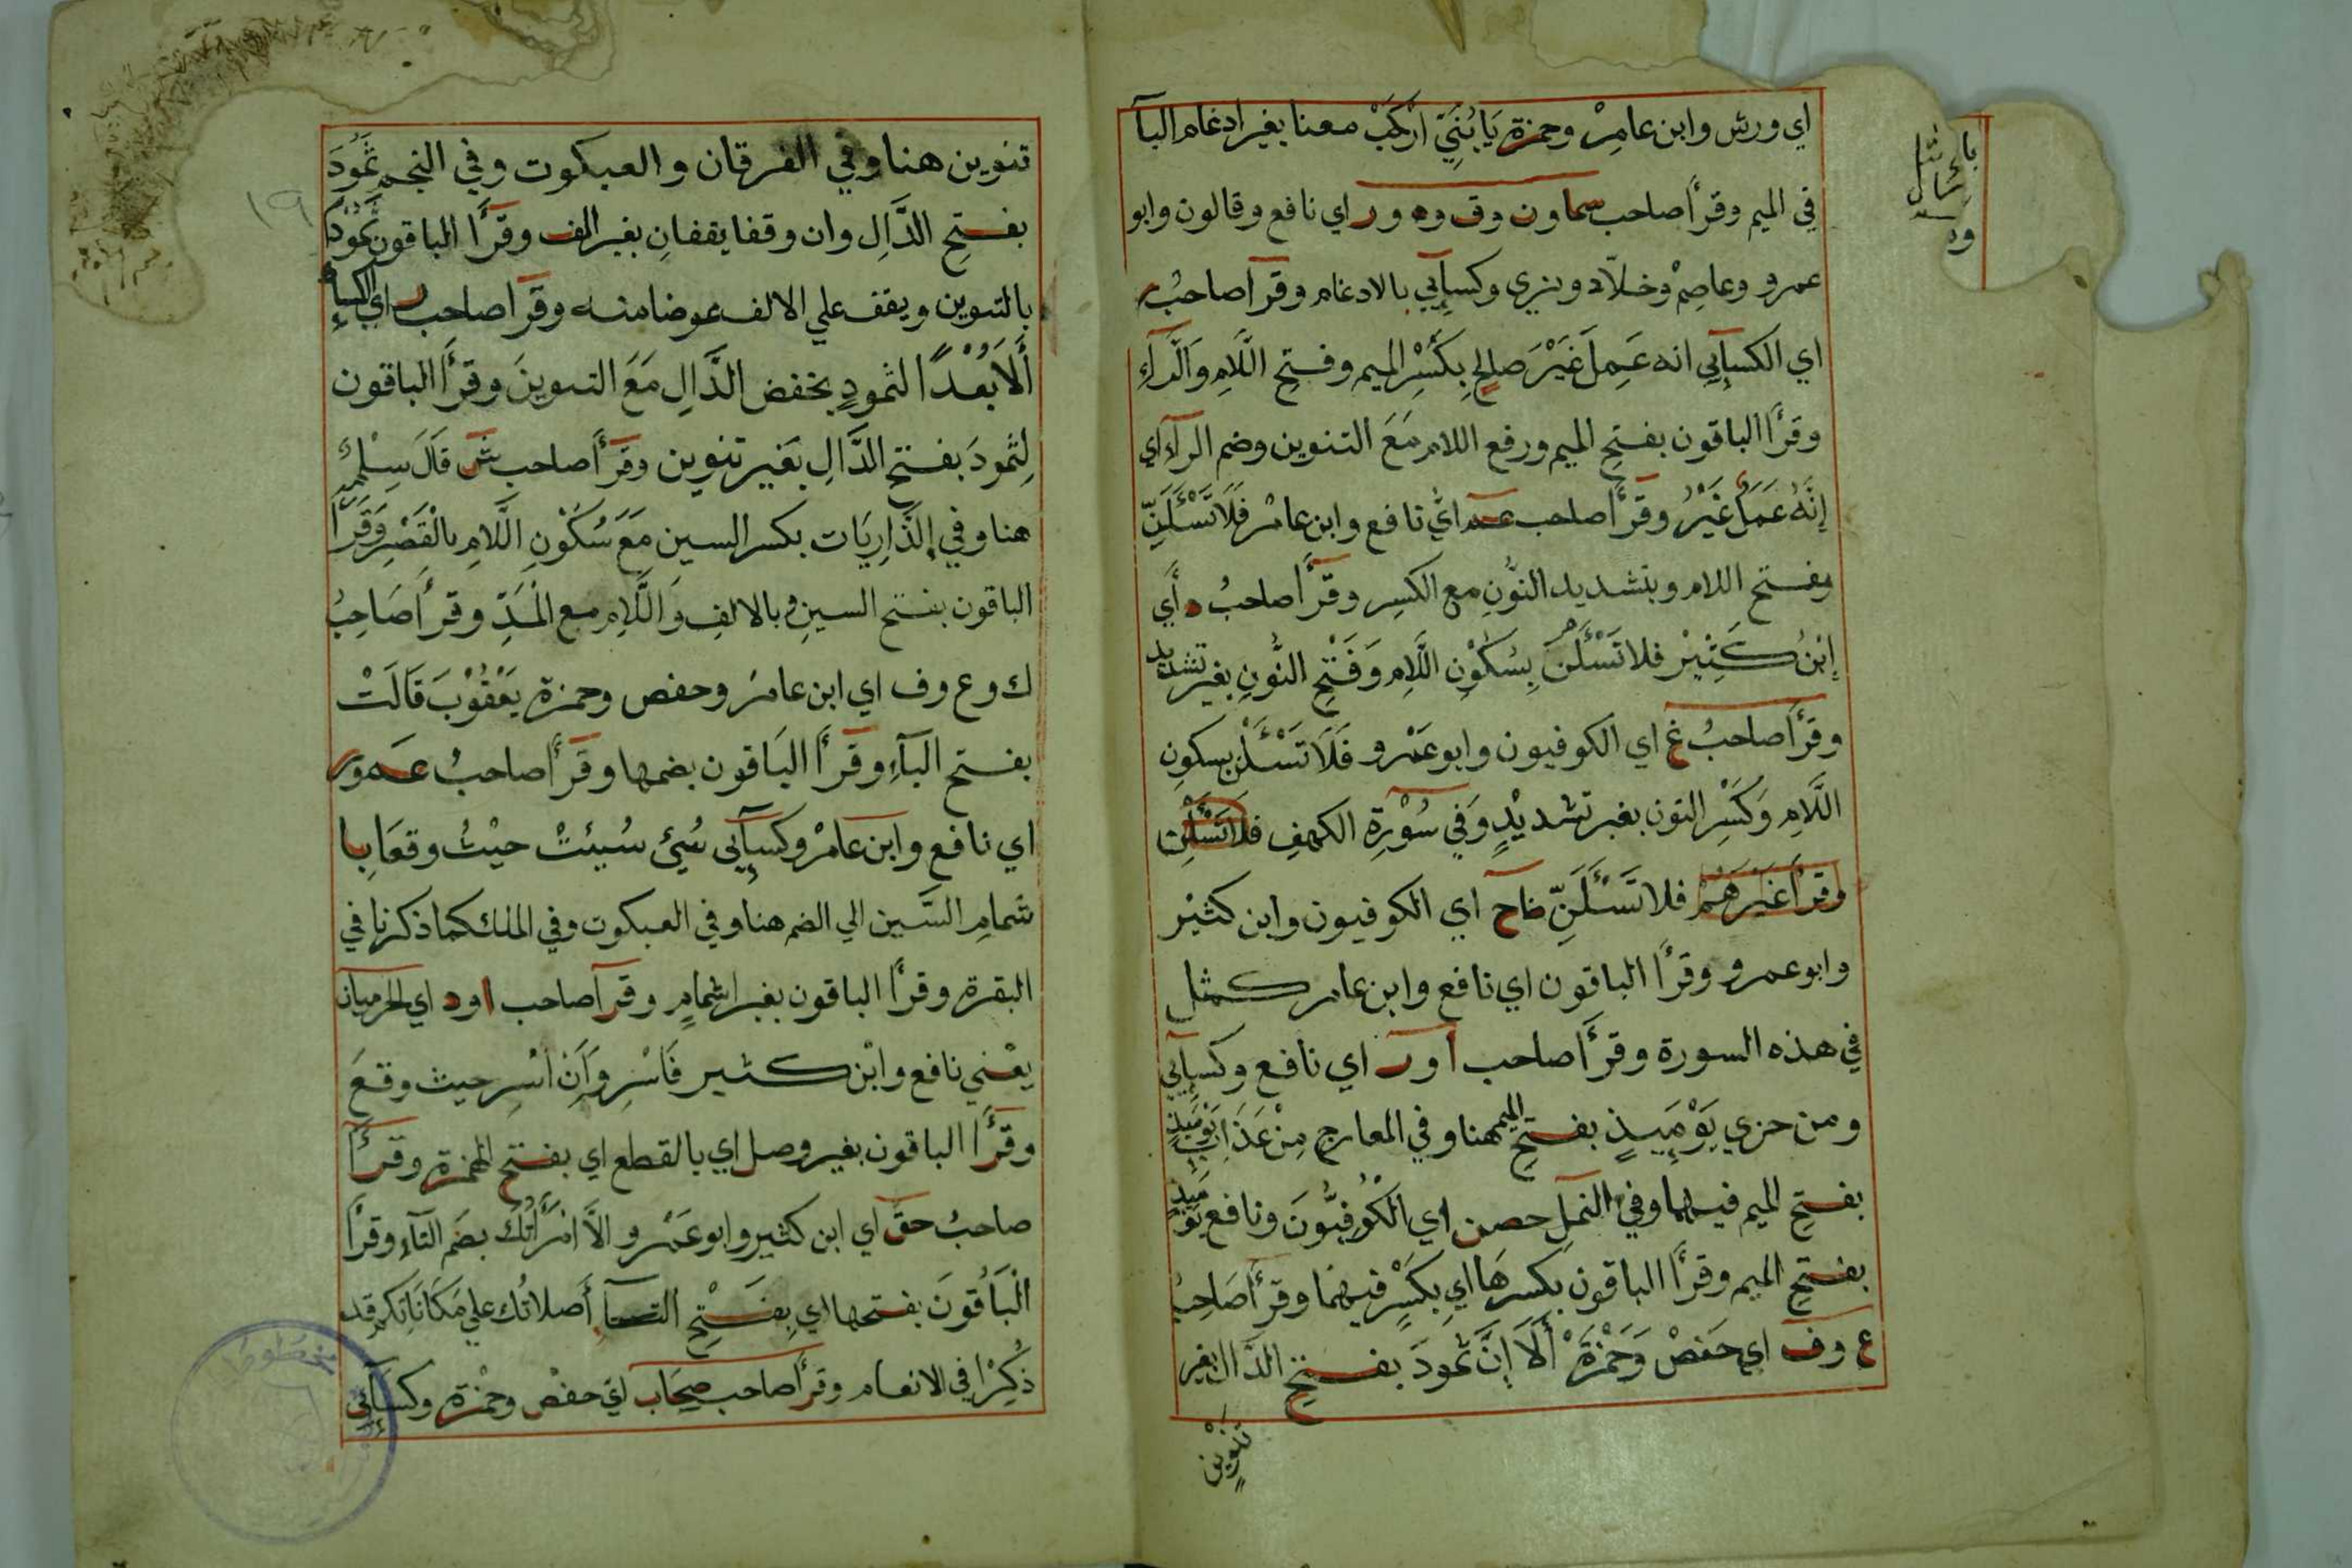 اي ورش وابن عامِرْ وحمزة يَا بُنَيِّ ارْكَبْ معنا بغير ادغام البآ
في الميم وقرأ صاحب سما ون وق وه ور اي نافع وقالون وابو
عمرو وعاصِمْ وخلّاد وبزي وكسآئي بالادغام وقرآ صاحبُ ر
اي الكسآئي انه عَمِلَ غَيْرَ صلحٍ بِكَسْرِ الميم وفتحِ اللَّامِ وَالرَّآءِ
وقرأ الباقون بفتحِ الميم ورفع اللام مَعَ التنوين وضم الرآء اي
إنَّهُ عَمَلٌ غَيْرُ وقرأ صاحب عم اي نافع وابن عامرْ فَلَا تَسْئَلَنِّ
بفتح اللام وبتشديد النُّونِ مع الكسرِ وقرأ صاحبُ د أي
إبْنُ كَثِيْر فلا تَسْئَلَنَّ بِسُكُوْنِ اللَّامِ وَفَتْحِ النُّونِ بغير تشديد
وقرأ صاحبُ غ اي الكوفيون وابو عَمْرو فَلَا تَسْئَلْنِ بسكونِ
اللَّامِ وَكَسْرِ النون بغير تشديْدٍ وَفي سُوْرِة الكهفِ فلا تَسْئَلْنِ
وقرأ غَيْرَهُمْ فلا تَسْئَلَنِّ ظاح اي الكوفيون وابن كثيْر
وابو عمرو وقرأ الباقون اي نافع وابن عامر كمثل
في هذه السورة وقرأ صاحب ا ور اي نافع وكسآئي
ومن خزي يَوْمَئِيذٍ بفتحِ الميم هنا وفي المعارج مِنْ عَذَابِ يَوْمَئِيذٍ
بفتحِ الميم فيهما وفي النمل حصن اي الْكُوْفِيُّونَ ونافع يَوْمَئِيذٍ
بفتحِ الميم وقرأ الباقون بكسرهَا اي بِكَسْرٍ فيهما وقرأ صَاحِبُ
ع وف اي حَفصْ وَحَمْزَةْ أَلَا إِنَّ ثمودَ بفتحِ الدَّال بغير
تنْوِينٍ
تنوين هنا وفي الفرقان والعبكوت وفي النجم ثَمُودَ
بفتحِ الدَّالِ وان وقفا يقفانِ بغير الف وقرأ الباقون ثمود
بالتنوين ويقف علي الالف عوضا منه وقرآ صاحب ر اي الكسآئي
أَلَا بُعْدًا لثمودٍ بخفض الدَّالِ مَعَ التنوينَ وقرأ الباقون
لِثمودَ بفتح الدَّالِ بغير تنوين وقرأ صاحب ش قَالَ سِلْمٌ
هنا وفي الذَّارِيَات بكسر السين مَعَ سُكُوْنِ اللَّامِ بالْقَصْرِ وَقَرَأ
الباقون بفتح السينِ وبالالفِ وَاللَّامِ مع الْمَدِّ وقرأ صَاحِبُ
ك وع وف اي ابن عامرْ وحفص وحمزة يَعْقُوْبَ قَالَتْ
بفتح البآءِ وقرأ البَاقون بضمها وقرأ صاحبُ عَم ور
اي نافع وابن عَامْر وكسآئي سُيءَ سُيئتْ حيْثُ وقعَا با
شمامِ السِّين الي الضم هنا وفي العبكوت وفي الملك كما ذكرنا في
البقرة وقرأ الباقون بغير اشمامٍ وقرآ صاحب ا ود اي الحرميان
يعْني نافع وابْن كثير فَاسْرِ وَاَنِ اسْرِ حيث وقعَ
وقرأ الباقون بغير وصل اي بالقطع اي بفتح الهمزة وقرأ
صاحبُ حق اي ابن كثير وابو عَمْرو الاَّ امْرَأتُكَ بضم التآء وقرأ
الْبَاقُونَ بفتحها اي بِفَتْحِ التآء أصلاتُك علي مَكَانَاتِكم قد
ذُكِرْا في الانعام وقرأ صاحب صِحَاب اي حفصْ وحمْزة وكسآئي
١٩